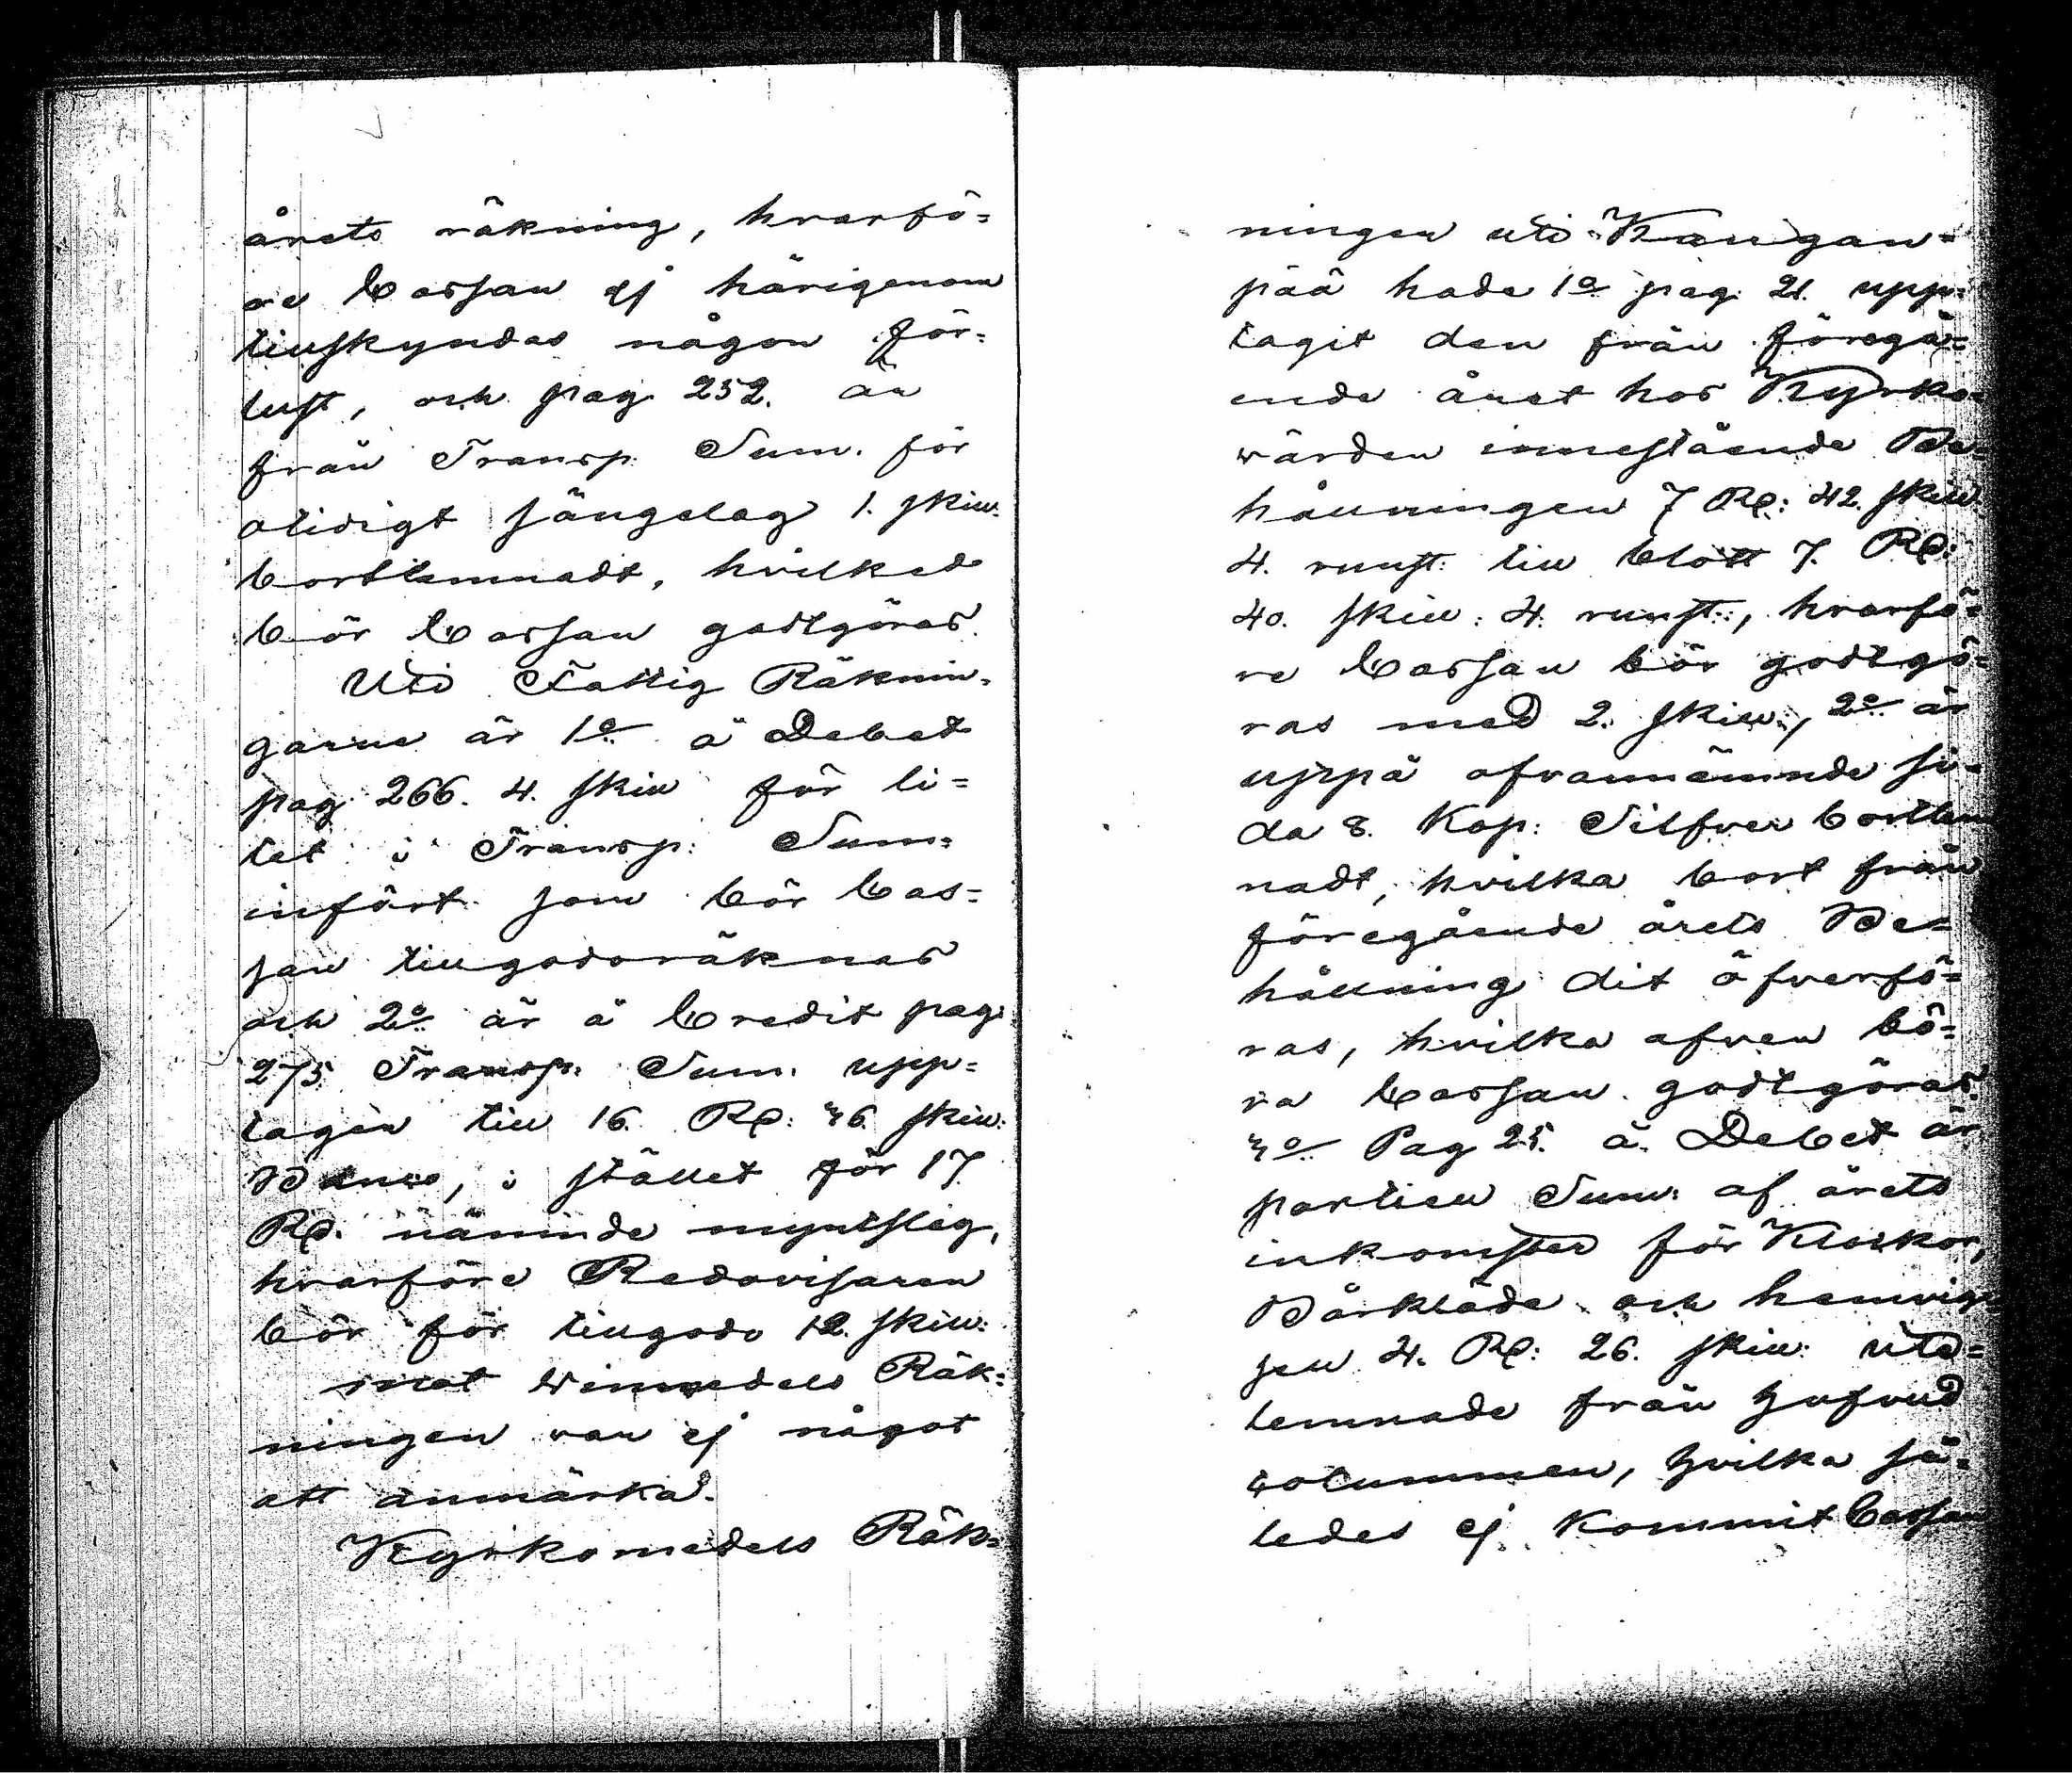 årets räkning, hvarfö=
re Cassan ej härigenom
tillskyndas någon för=
lust, och pag 252. är
från Transp. Sum. för
otidigt sängelag 1. skill.
bortlemnadt, hvilket
bör Cassan godtgöras.
Uti Fattig Räknin-
garne är 1o å Debet
pag 266. 4. skill för li=
tet i Transp: Sum=
infört som bör Cas=
san tillgodoräknas
och 2o är å Credit pag:
275 Transp. Sum. upp=
tagen till 16. RD: 36 skill.
Banco, i stället för 17
RD. nämnde myntslag,
hvarföre Redovisaren
bör för tillgodo 12. skill:
mot Winmedels Räk=
ningen var ej något
att anmärka.
Kyrkomedels Räk=
ningen uti Kangan=
pää hade 1o pag: 21. upp=
tagit den från föregå=
ende året hos Kyrko=
wärden innestående Be=
hållningen 7 RD: 42. skill.
4. runst: till blott 7. RD:
40. skill: 4. runst:, hvarfö=
re Cassan bör godtgö=
ras med 2. skill:, 2o är
uppå ofvannämnde si=
da 8. Kop: Silfver bortlem
nadt, hvilka bort från
föregående årets Be=
hållning dit öfverfö=
ras, hvilka afven bö=
ra Cassan godtgöras.
3o Pag 25. å Debet är
partiell Sum: af årets
inkomster för Klockor,
Bårkläde och hemvig
sell 4. RD: 26. skill: ute=
lemnade från hufvud
columnen, hvilka så=
ledes ej kommit Cassan